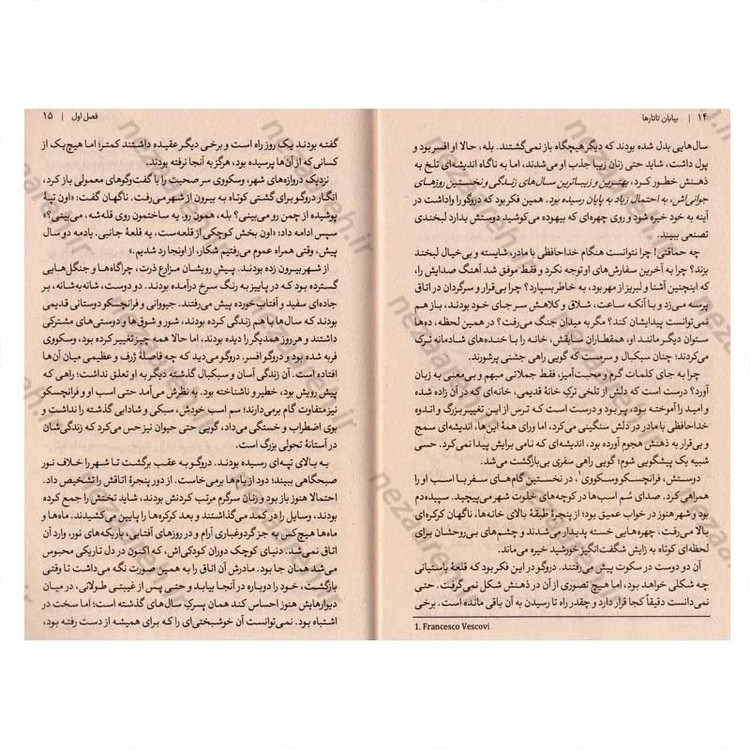 ۱۴ | بیابان تاتارها
سال‌هایی بدل شده بودند که دیگر هیچگاه باز نمی‌گشتند. بله، حالا او افسر بود و
پول داشت، شاید حتی زنان زیبا جذب او می‌شدند، اما به ناگاه اندیشه‌ای تلخ به
ذهنش خطور کرد، بهترین و زیباترین سال‌های زندگی و نخستین روزهای
جوانی‌اش، به احتمال زیاد به پایان رسیده بود. همین فکر بود که دروگو را واداشت در
آینه به خود خیره شود و روی چهره‌ای که بیهوده می‌کوشید دوستش بدارد لبخندی
تصنعی ببیند.
چه حماقتی! چرا نتوانست هنگام خداحافظی با مادر، شایسته و بی‌خیال لبخند
بزند؟ چرا به آخرین سفارش‌های او توجه نکرد و فقط موفق شد آهنگ صدایش را،
که اینچنین آشنا و لبریز از مهر بود، به خاطر بسپارد؟ چرا بی‌قرار و سرگردان در اتاق
پرسه می‌زد و با آنکه ساعت، شلاق و کلاهش سر جای خود بودند، باز هم
نمی‌توانست پیدایشان کند؟ مگر به میدان جنگ می‌رفت؟ در همین لحظه، ده‌ها
ستوان دیگر مانند او، همقطاران سابقش، خانه را با خنده‌های شادمانه ترک
می‌کردند؛ چنان سبکبال و سرمست که گویی راهی جشنی پرشورند.
چرا به جای کلمات گرم و محبت‌آمیز، فقط جملاتی مبهم و بی‌معنی به زبان
آورد؟ درست است که دلش از تلخی ترکِ خانهٔ قدیمی، خانه‌ای که در آن زاده شده
و امید را آموخته بود، پر بود و درست است که ترس از این تغییر بزرگ و اندوه
خداحافظی با مادر در دلش سنگینی می‌کرد، اما ورای همهٔ این‌ها، اندیشه‌ای سمج
و بی‌قرار به ذهنش هجوم آورده بود، اندیشه‌ای که نامی برایش پیدا نمی‌کرد. حسی
شبیه یک پیشگویی شوم؛ گویی راهی سفری بی‌بازگشت می‌شد.
دوستش، فرانچسکو وسکووی۱، در نخستین گام‌های سفر با اسب او را
همراهی کرد. صدای سُم اسب‌ها در کوچه‌های خلوت شهر می‌پیچید. سپیده‌دم
بود و شهر هنوز در خواب عمیق بود؛ از پنجرهٔ طبقهٔ بالای خانه‌ها، ناگهان کرکره‌ای
بالا می‌رفت، چهره‌هایی خسته پدیدار می‌شدند و چشم‌های بی‌روحشان برای
لحظه‌ای کوتاه به زایش شگفت‌انگیز خورشید خیره می‌ماند.
آن دو دوست در سکوت پیش می‌رفتند. دروگو در این فکر بود که قلعهٔ باستیانی
چه شکلی خواهد بود، اما هیچ تصوری از آن در ذهنش شکل نمی‌گرفت. حتی
نمی‌دانست دقیقاً کجا قرار دارد و چقدر راه تا رسیدن به آن باقی مانده است. برخی
1. Francesco Vescovi
فصل اول | ۱۵
گفته بودند یک روز راه است و برخی دیگر عقیده داشتند کمتر؛ اما هیچ‌یک از
کسانی که از آن‌ها پرسیده بود، هرگز به آنجا نرفته بودند.
نزدیک دروازه‌های شهر، وسکووی سر صحبت را با گفت‌وگوهای معمولی باز کرد،
انگار دروگو برای گشتی کوتاه به بیرون از شهر می‌رفت. ناگهان گفت: «اون تپهٔ
پوشیده از چمن رو می‌بینی؟ بله، همون رو. یه ساختمون روی قله‌شه، می‌بینی؟»
سپس ادامه داد: «اون بخش کوچکی از قلعه‌ست، یه قلعهٔ جانبی. یادمه دو سال
پیش، وقتی همراه عموم می‌رفتیم شکار، از اونجا رد شدیم.»
از شهر بیرون زده بودند. پیشِ رویشان مزارع ذرت، چراگاه‌ها و جنگل‌هایی
گسترده بود که در پاییز به رنگ سرخ درآمده بودند. دو دوست، شانه‌به‌شانه، بر
جاده‌ای سفید و آفتاب خورده پیش می‌رفتند. جیوانی و فرانچسکو دوستانی قدیمی
که سال‌ها با هم زندگی کرده بودند، شور و شوق‌ها و دوستی‌های مشترکی
داشتند و هر روز همدیگر را دیده بودند، اما حالا همه چیز تغییر کرده بود، وسکووی
فربه شده بود و دروگو افسر. دروگو می‌دید که چه فاصلهٔ ژرف و عظیمی میان آن‌ها
افتاده است. آن زندگی آسان و سبکبال گذشته دیگر به او تعلق نداشت؛ راهی که
پیش رویش بود، خطیر و ناشناخته بود. به نظرش می‌آمد حتی اسب او و فرانچسکو
نیز متفاوت گام برمی‌دارند؛ سم اسب خودش، سبکی و شادابی گذشته را نداشت و
بوی اضطراب و خستگی می‌داد، گویی حتی حیوان نیز حس می‌کرد که زندگی‌شان
در آستانهٔ تحولی بزرگ است.
به بالای تپه‌ای رسیده بودند. دروگو به عقب برگشت تا شهر را خلاف نور
صبحگاهی ببیند؛ دود از بام‌ها برمی‌خاست. از دور پنجرهٔ اتاقش را تشخیص داد.
احتمالا هنوز باز بود و زنان سرگرم مرتب کردنش بودند، شاید تختش را جمع کرده
بودند، وسایل را در کمد می‌گذاشتند و بعد کرکره‌ها را پایین می‌کشیدند. ماه‌ها و
ماه‌ها هیچ‌کس به جز گردوغباری آرام و در روزهای آفتابی، باریکه‌های نور، وارد آن
اتاق نمی‌شد. دنیای کوچک دوران کودکی‌اش، که اکنون در دل تاریکی محبوس
می‌شد همان جا بود. مادرش آن اتاق را به همین صورت نگه می‌داشت تا وقتی
بازگشت، خود را دوباره در آنجا بیابد و حتی پس از غیبتی طولانی، در میان
دیوارهایش هنوز احساس کند همان پسرکِ سال‌های گذشته است؛ اما سخت در
اشتباه بود. نمی‌توانست آن خوشبختی‌ای را که برای همیشه از دست رفته بود،
nezareh.ir